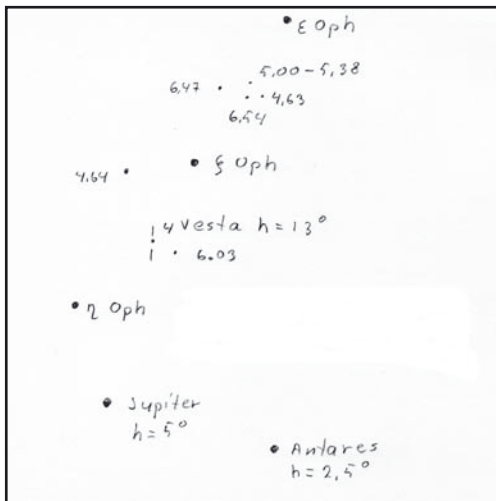 ε Oph
5,00-5,38
6,47
4,63
6,54
ξ Oph
4,64
4 Vesta h=13°
6.03
η Oph
Jupiter
h=5°
Antares
h=2,5°